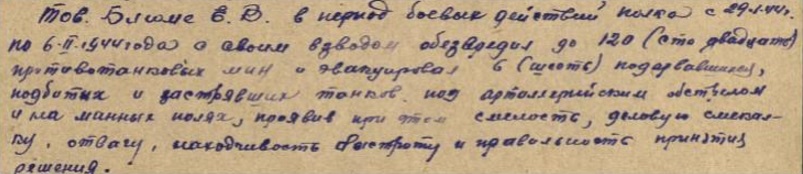 Тов. Блюме Е. В. в период боевых действий полка с 29.I.44г.
по 6-II-1944 года с своим взводом обезвредил до 120 (сто двадцати)
противотанковых мин и эвакуировал 6 (шесть) подорвавшихся,
подбитых и застрявших танков под артиллерийским обстрелом
и на минных полях, проявив при этом смелость, деловую смекал-
ку, отвагу, находчивость быстроту и правильность принятия
решения.